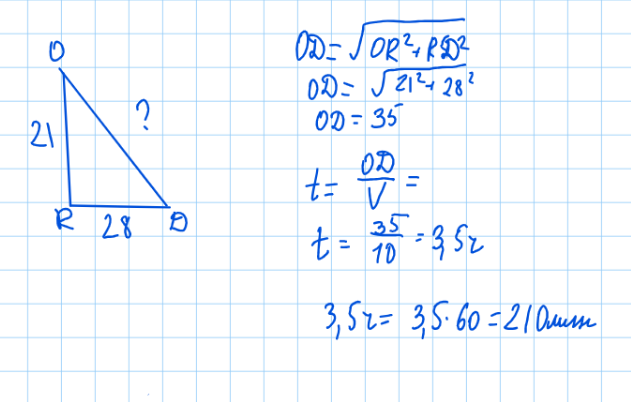 O
21
?
R
28
D
OD = √OR² + RD²
OD = √21² + 28²
OD = 35
t = OD/V =
t = 35/10 = 3,5ч
3,5ч = 3,5·60 = 210мин